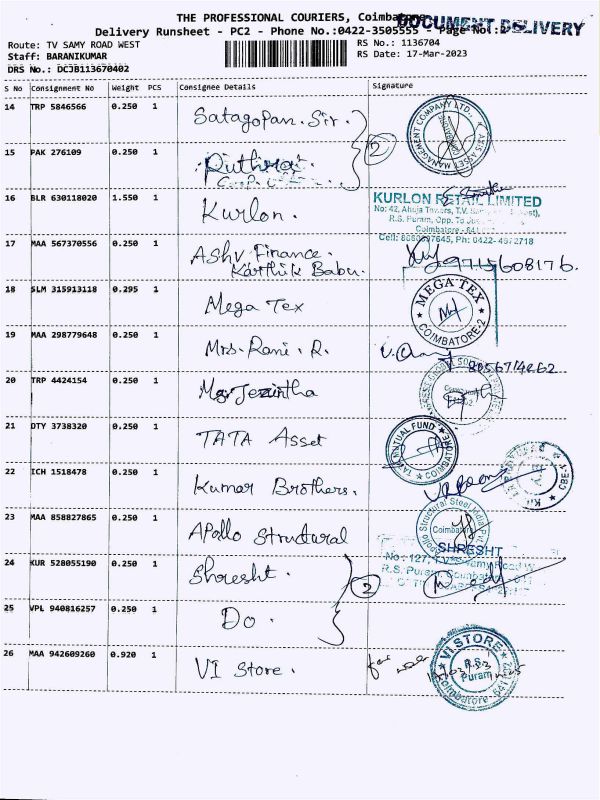 THE PROFESSIONAL COURIERS,
DOCUMENT DELIVERY
Delivery Runsheet - PC2 - Phone No.:0422-3505555 - Page No.:2
Route: TV SAMY ROAD WEST
RS No.: 1136704
Staff: BARANIKUMAR
RS Date: 17-Mar-2023
DRS No.: DCJB113670402
S No Consignment No Weight PCS Consignee Details Signature
14 TRP 5846566 0.250 1 Satagopan. Sir.
15 PAK 276109 0.250 1 Ruthirai. 2
16 BLR 630118020 1.550 1 Kurlon.
KURLON RETAIL LIMITED
No: 42, Ahuja Towers, T.V.
R.S. Puram, Opp. To
Coimbatore
17 MAA 567370556 0.250 1 Ashv Finance. Karthik Babu. 9715608176.
18 SLM 315913118 0.295 1 Mega Tex
MEGA TEX COIMBATORE-2
19 MAA 298779648 0.250 1 Mrs. Rani. R.
20 TRP 4424154 0.250 1
21 DTY 3738320 0.250 1 TATA Asset
TATA MUTUAL FUND COIMBATORE
22 ICH 1518478 0.250 1 Kumar Brothers.
23 MAA 858827865 0.250 1 Apollo Structural
Apollo Structural Steel India Pvt.
SHRESHT
24 KUR 528055190 0.250 1 Shresht. 2
25 VPL 940816257 0.250 1 Do.
26 MAA 942609260 0.920 1 VI Store.
VI STORE R.S. Puram Coimbatore